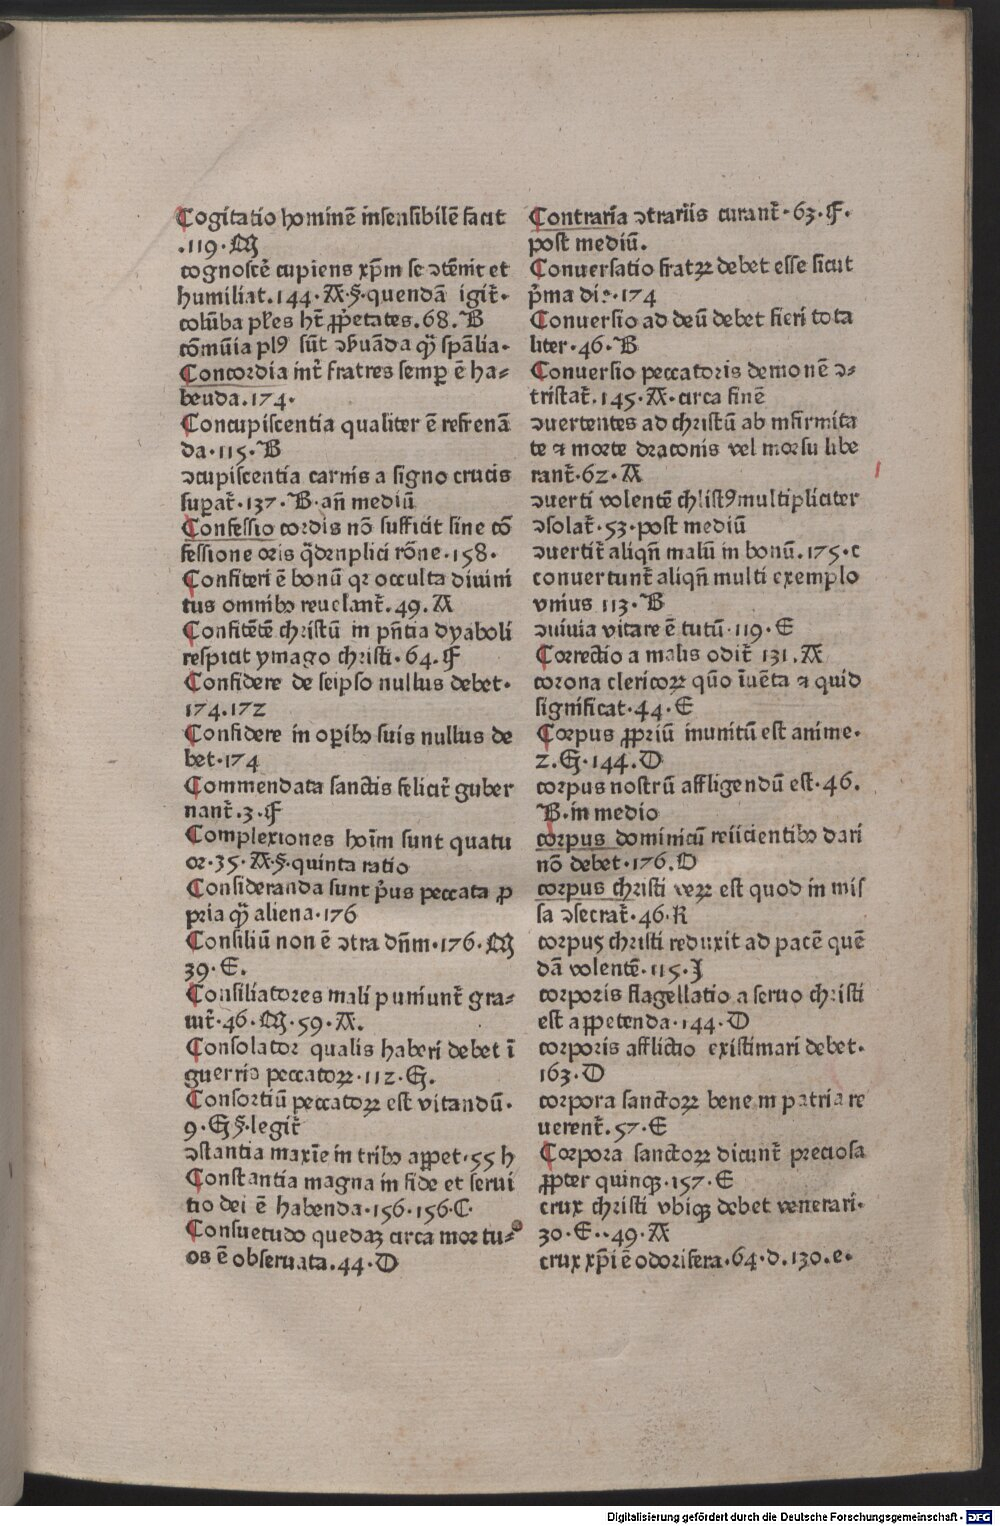 Cogitatio hominē insensibilē facit
.119.M
cognoscē cupiens xp̄m se ↄtēnit et
humiliat.144.A.§.quendā igit̄.
colūba pl̄es ht̄ ꝓp̄etates.68.B
cōmūia plꝰ sūt ↄẜuāda qᷓ sp̄alia.
Concordia int̄ fratres semꝑ ē ha⸗
beuda.174.
Concupiscentia qualiter ē refrenā
da.115.B
ↄcupiscentia carnis a signo crucis
suꝑat̄.137.B.an̄ mediū
Confessio cordis nō sufficit sine cō
fessione oris qᷓdruplici rōne.158.
Confiteri ē bonū qꝛ occulta diuini
tus omnibꝫ reuelant̄.49.A
Confitētē christū in pn̄tia dyaboli
respicit ymago christi.64.F
Confidere de seipso nullus debet.
174.172
Confidere in oꝑibꝫ suis nullus de
bet.174
Commendata sanctis felicit̄ guber
nant̄.3.F
Complexiones hoīm sunt quatu
or.35.A.§.quinta ratio
Consideranda sunt p̄us peccata ꝓ
pria qᷓ aliena.176
Consiliū non ē ↄtra dn̄m.176.M
39.E.
Consiliatores mali puniunt̄ gra⸗
uit̄.46.M.59.A.
Consolator qualis haberi debet ī
guerria peccatoꝝ.112.G.
Consortiū peccatoꝝ est vitandū.
9.G §.legit̄
ↄstantia maxīe in tribꝫ appet.55 h
Constantia magna in fide et serui
tio dei ē habenda.156.156.C.
Consuetudo quedaꝫ circa mortu⸗
os ē obseruata.44.D
Contraria ↄtrariis curant̄.63.F.
post mediū.
Conuersatio fratꝝ debet esse sicut
p̄ma die.174
Conuersio ad deū debet fieri tota
liter.46.B
Conuersio peccatoris demonē ↄ⸗
tristat̄.145.A.circa finē
ↄuertentes ad christū ab infirmita
te ⁊ morte draconis vel morsu libe
rant̄.62.A
ↄuerti volentē christꝰ multipliciter
ↄsolat̄.53.post mediū
ↄuertit̄ aliqn̄ malū in bonū.175.c
conuertunt̄ aliqn̄ multi exemplo
vnius 113.B
ↄuiuia vitare ē tutū.119.E
Correctio a malis odit̄ 131.A
corona clericoꝝ quō īuēta ⁊ quid
significat.44.E
Corpus ꝓpriū inimicū est anime.
2.G.144.D
corpus nostrū affligendū est.46.
B.in medio
corpus dominicū reiicientibꝫ dari
nō debet.176.D
corpus christi veꝝ est quod in mis
sa ↄsecrat̄.46.K
corpus christi reduxit ad pacē quē
dā volentē.115.J
corporis flagellatio a seruo christi
est appetenda.144.D
corporis afflictio existimari debet.
163.D
corpora sanctoꝝ bene in patria re
uerent̄.57.E
Corpora sanctoꝝ dicunt̄ preciosa
ꝓpter quinqꝫ.157.E
crux christi vbiqꝫ debet venerari.
30.E..49.A
crux xp̄i ē odorifera.64.d.130.e.
Digitalisierung gefördert durch die Deutsche Forschungsgemeinschaft - DFG